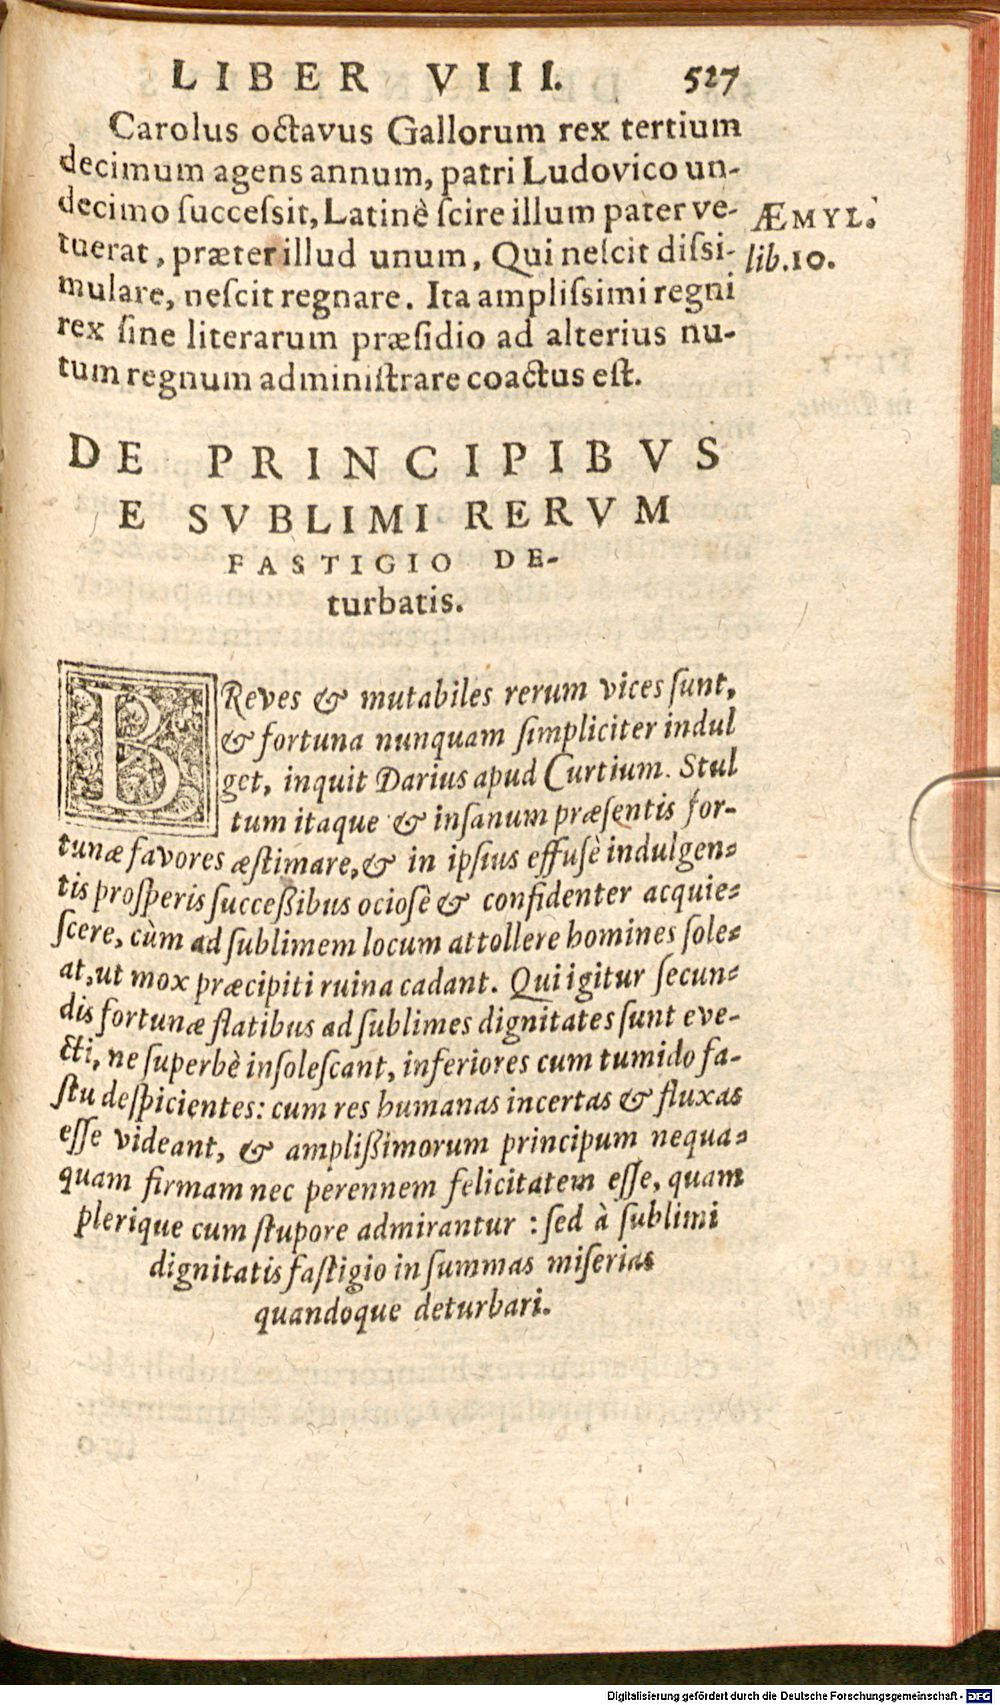 LIBER VIII. 527
Carolus octavus Gallorum rex tertium
decimum agens annum, patri Ludovico un-
decimo ſucceſsit, Latinè ſcire illum pater ve-
tuerat, præter illud unum, Qui neſcit diſsi-
mulare, neſcit regnare. Ita ampliſsimi regni
rex ſine literarum præſidio ad alterius nu-
tum regnum adminiſtrare coactus eſt.
ÆMYL.
lib.10.
DE PRINCIPIBVS
E SVBLIMI RERVM
FASTIGIO DE-
turbatis.
BReves & mutabiles rerum vices ſunt,
& fortuna nunquam ſimpliciter indul
get, inquit Darius apud Curtium. Stul
tum itaque & inſanum præſentis for-
tunæ favores æſtimare, & in ipſius effuſè indulgen-
tis proſperis succeßibus ocioſè & confidenter acquie-
ſcere, cùm ad ſublimem locum attollere homines ſole-
at, ut mox præcipiti ruina cadant. Qui igitur ſecun-
dis fortunæ flatibus ad ſublimes dignitates ſunt eve-
cti, ne ſuperbè inſoleſcant, inferiores cum tumido fa-
ſtu deſpicientes: cum res humanas incertas & fluxas
eſſe videant, & amplißimorum principum nequa-
quam firmam nec perennem felicitatem eſſe, quam
plerique cum ſtupore admirantur : ſed à ſublimi
dignitatis faſtigio in ſummas miſerias
quandoque deturbari.
Digitalisierung gefördert durch die Deutsche Forschungsgemeinschaft - DFG